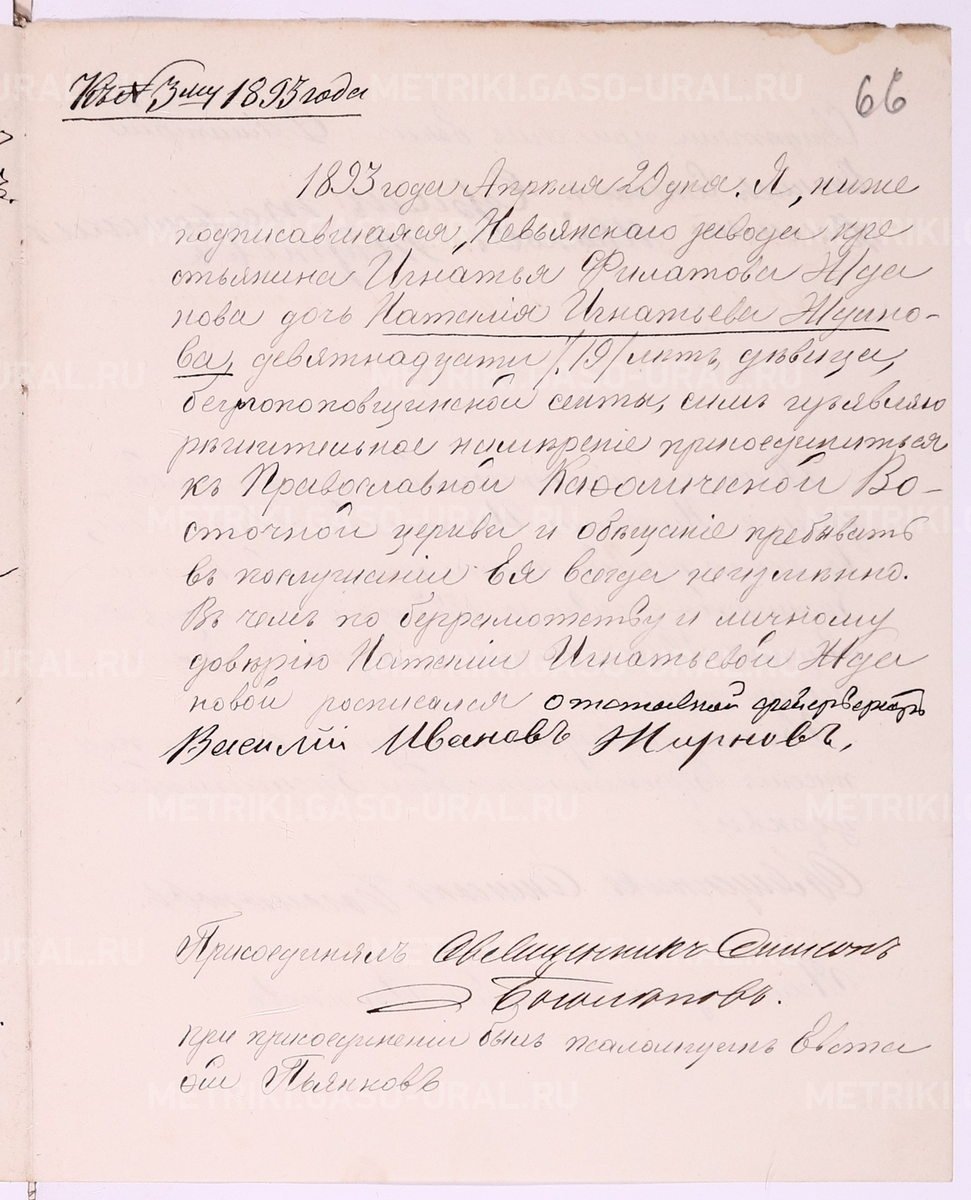 Къ № 3му 1893 года
66
1893 года Апреля 20 дня. Я, ниже
подписавшаяся, Невьянскаго завода кре
стьянина Игнатья Филатова Жда
нова дочь Наталія Игнатьева Ждано-
ва, девятнадцати /19/ летъ, девица,
беглопоповщинской секты, симъ изъявляю
решительное намереніе присоединиться
къ Православной Каѳолической Во-
сточной церкви и обещаніе пребывать
въ послушаніи Ея всегда неизменно.
Въ чемъ по безграмотству и личному
доверію Наталіи Игнатьевой Жда
новой росписался отставной фейерверкеръ
Василій Ивановъ Жирновъ,
Присоединялъ Священникъ Симеонъ
Богомоловъ.
при присоединеніи былъ псаломщикъ Евста
ѳій Пьянковъ
METRIKI.GASO-URAL.RU